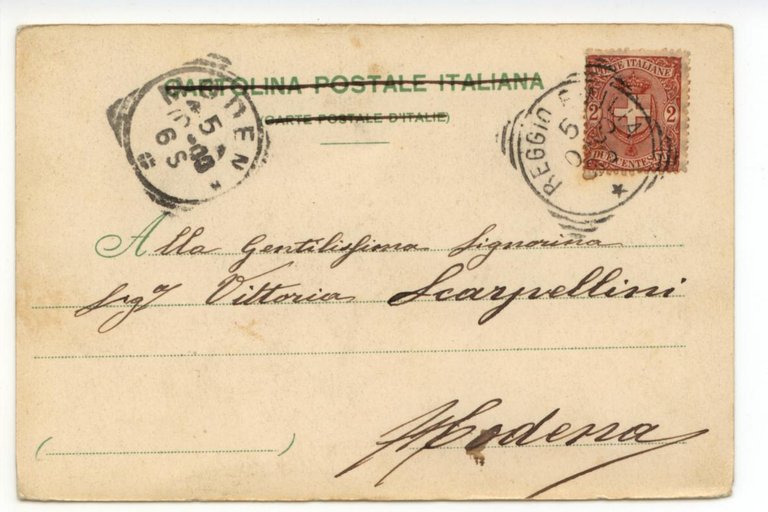 CARTOLINA POSTALE ITALIANA
(CARTE POSTALE D'ITALIE)
REGGIO
5
POSTE ITALIANE
2 2
DUE CENTESIMI
MODEN
5
00
6 S
Alla Gentilissima Signorina
Sigª Vittoria Scarpellini
Modena
( )